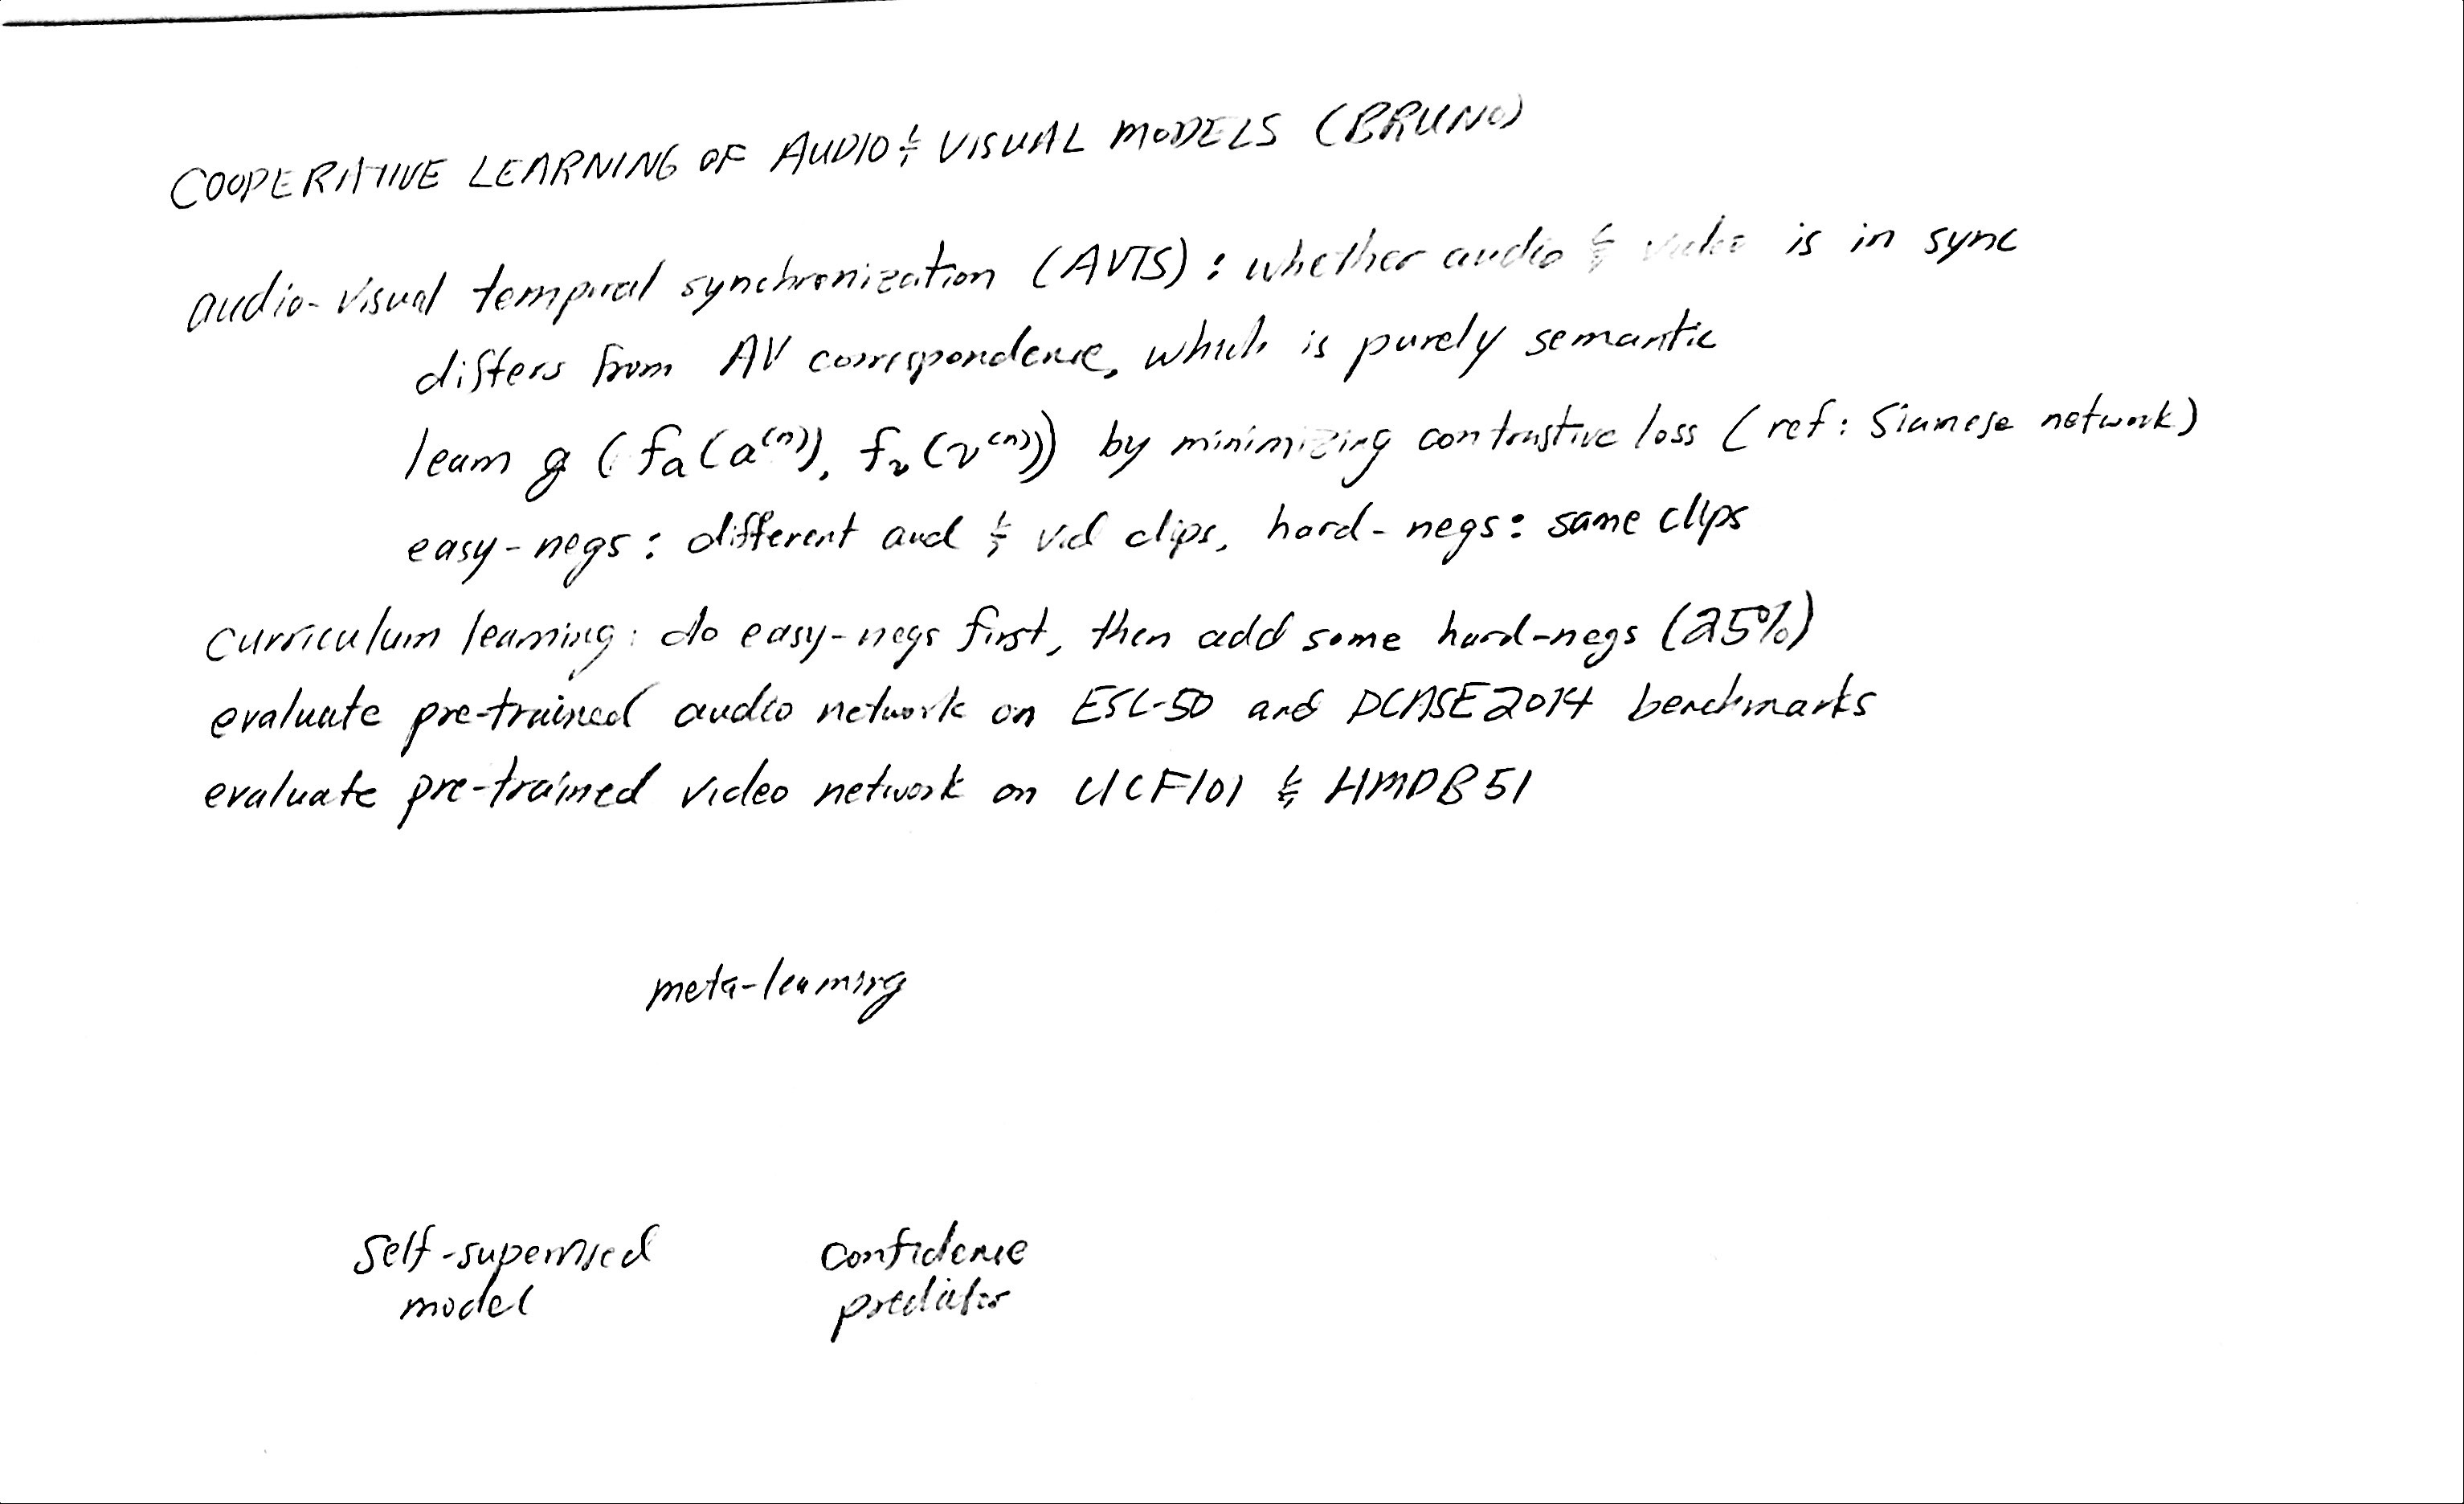 COOPERATIVE LEARNING OF AUDIO & VISUAL MODELS (BRUNO)
audio-visual temporal synchronization (AVTS): whether audio & video is in sync
differs from AV correspondence, which is purely semantic
learn g (fa(a⁽ⁿ⁾), fv(v⁽ⁿ⁾)) by minimizing contrastive loss (ref: Siamese network)
easy-negs: different aud & vid clips, hard-negs: same clips
curriculum learning: do easy-negs first, then add some hard-negs (25%)
evaluate pre-trained audio network on ESC-50 and DCASE2014 benchmarks
evaluate pre-trained video network on UCF101 & HMDB51
meta-learning
self-supervised confidence
model predictor